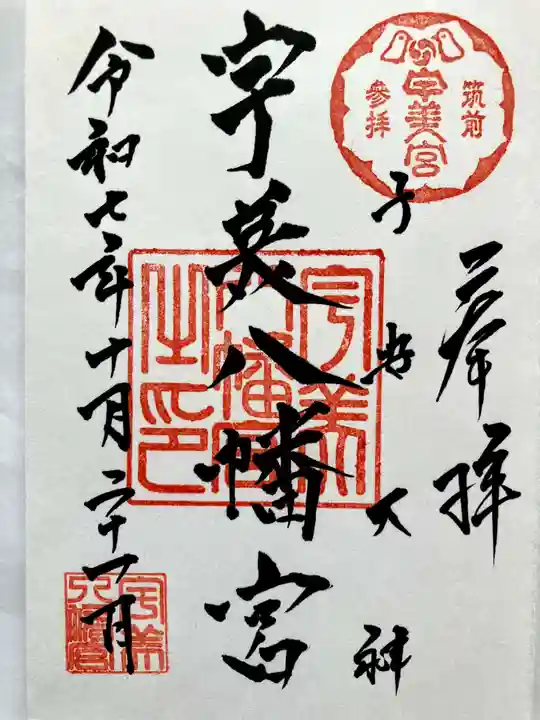 筑前
宇美宮
參拝
奉拝
子安大神
宇美八幡宮
宇美
八幡宮
之印
令和七年十月二十一日
宇美
八幡宮